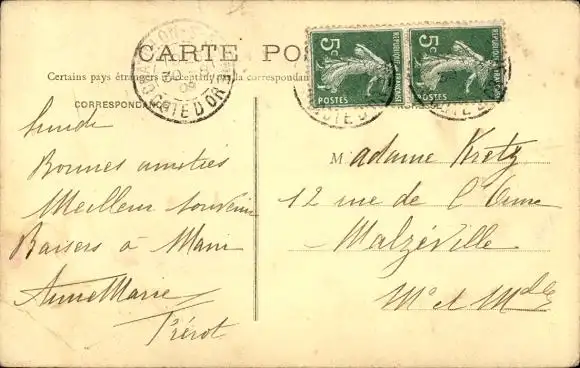 CARTE PO
Certains pays étrangers n'acceptent pas la correspondan
CORRESPONDAN
COTE D'OR
5c
REPUBLIQUE FRANÇAISE
POSTES
5c
REPUBLIQUE FRANÇAISE
POSTES
Bonnes amitiés
Meilleur souvenir
Baisers à Mani
AnneMarie
Trérot
Madame Kretz
12 rue de l'Orne
Malzéville
Mthe et Mdlle